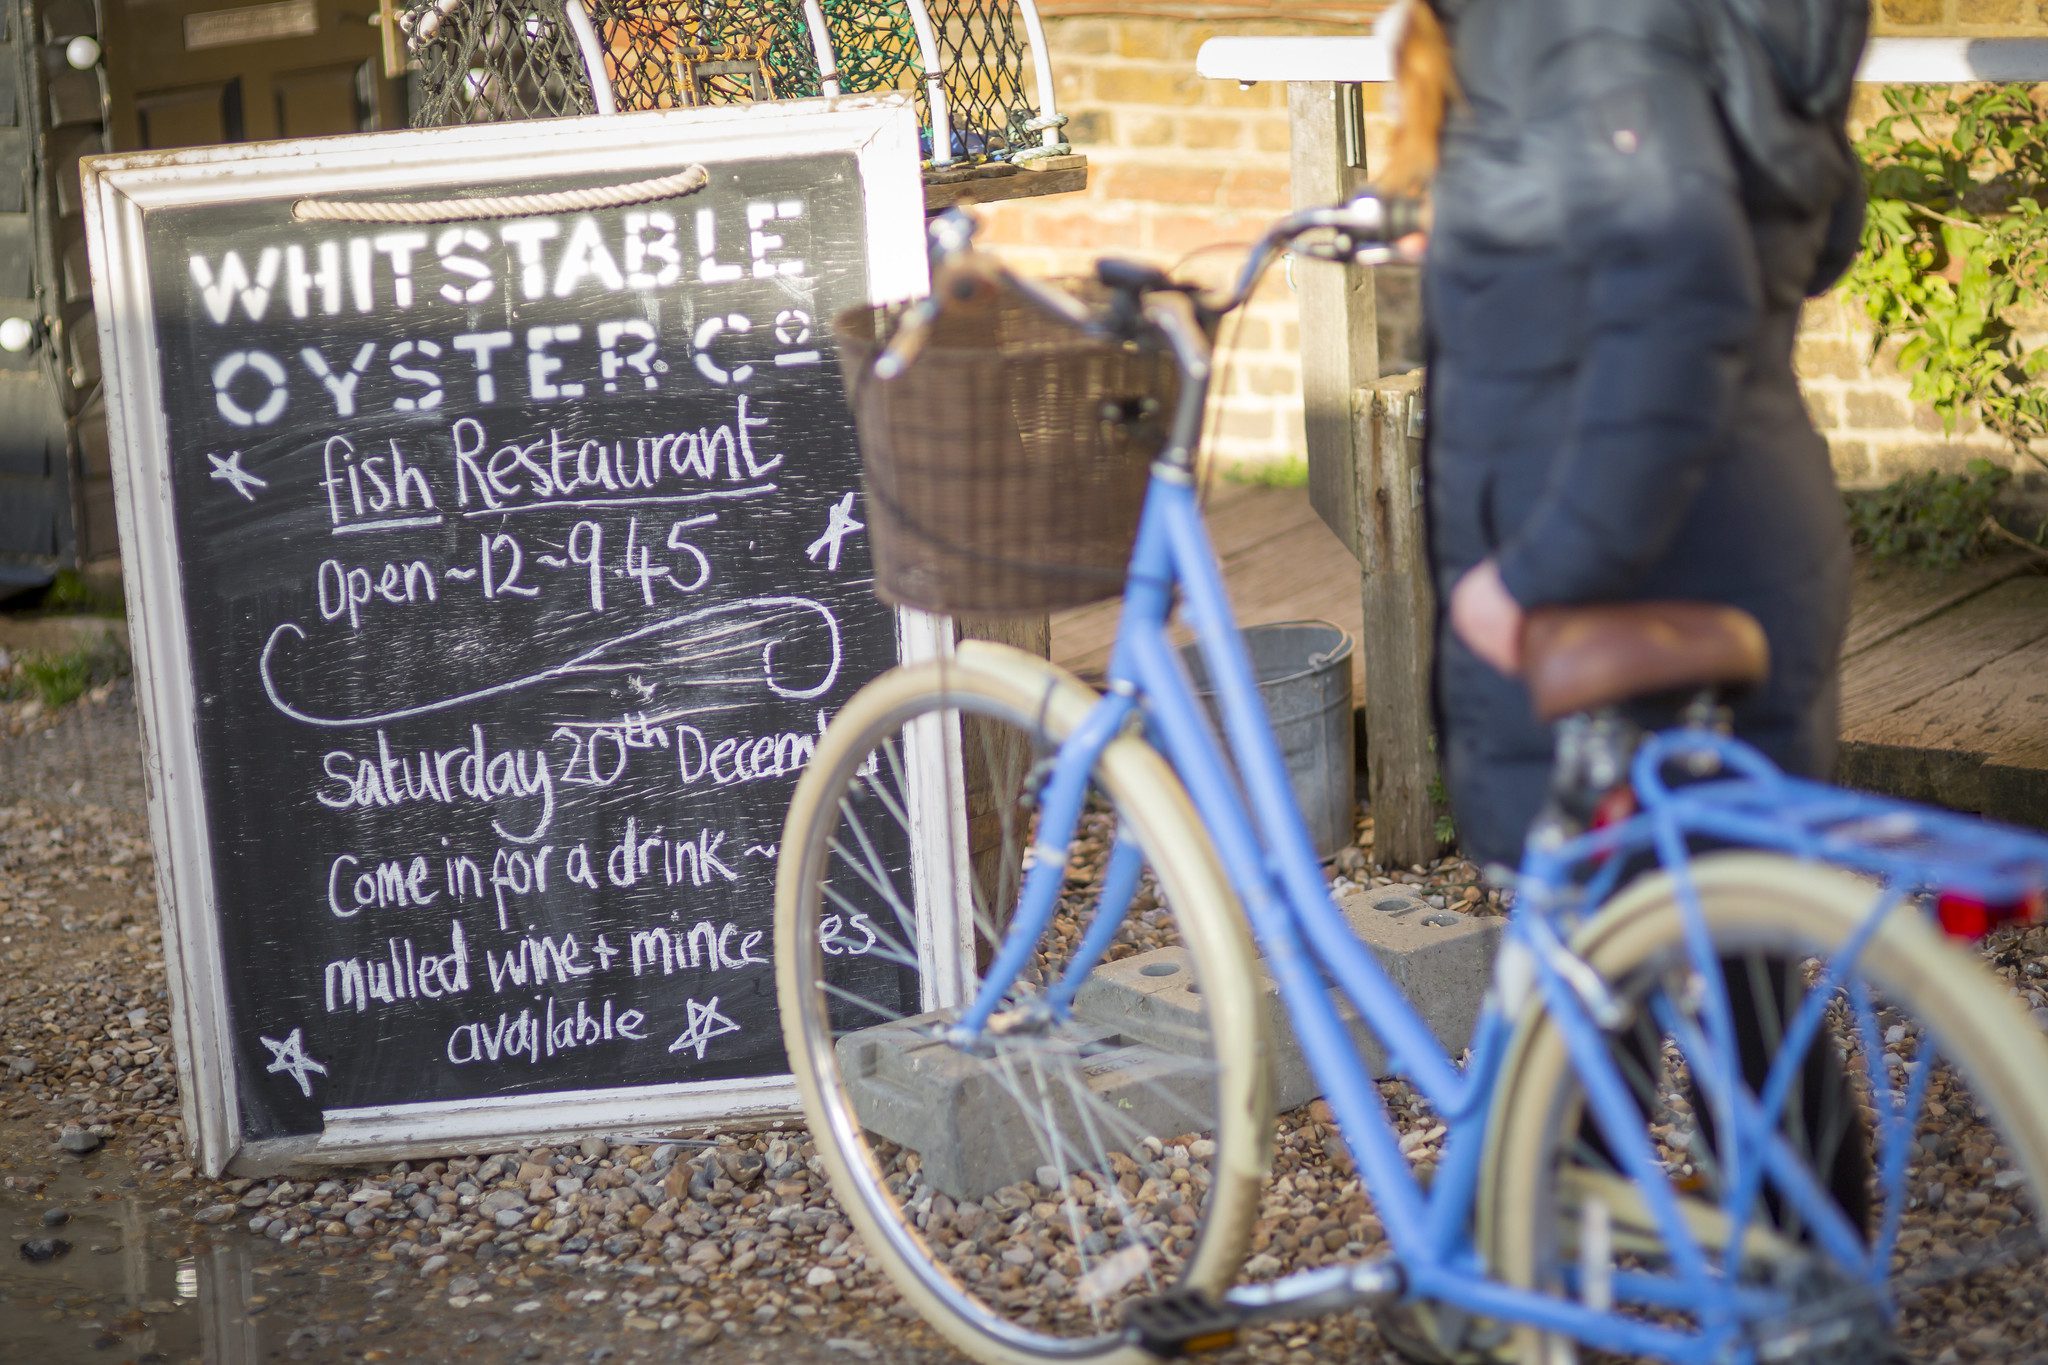 WHITSTABLE
OYSTER Cº
fish Restaurant
Open ~ 12 ~ 9.45
Saturday 20th December
Come in for a drink ~
mulled wine + mince
available